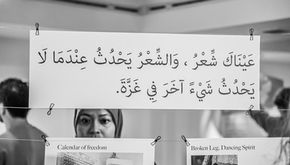 عَيْنَاكِ شِّعْرُ ، وَالشِّعْرُ يَحْدُثُ عِنْدَمَا لَا
يَحْدُثُ شَيْءٌ آخَرَ فِي غَزَّةَ.
Calendar of freedom
Broken Leg, Dancing Spirit